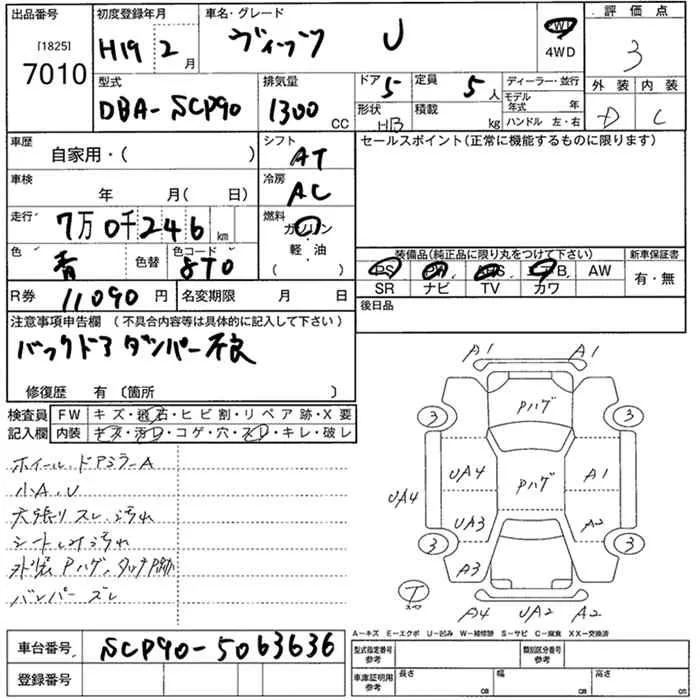 出品番号 初度登録年月 車名・グレード 評価点
[1825] 7010 H19 2月 ヴィッツ U FWD 4WD 3
型式 排気量 ドア 5 定員 5人 ディーラー・並行 外装 内装
DBA-SCP90 1300 CC 形状 HB 積載 kg モデル年式 年 D C
ハンドル 左・右
車歴 シフト セールスポイント(正常に機能するものに限ります)
自家用・( ) AT
車検 冷房
年 月( 日) AC
走行 7万0千246 km 燃料 ガソリン
軽・油
( )
色 青 色替 色コード 8T0 装備品(純正品に限り丸をつけて下さい) 新車保証書
PS PW ABS エアB AW 有・無
R券 11090円 名変期限 月 日 SR ナビ TV カワ
後日品
注意事項申告欄 (不具合内容等は具体的に記入して下さい)
バックドア ダンパー不良
修復歴 有 〔箇所 〕
検査員 FW キズ・飛石・ヒビ割・リペア跡・X要
記入欄 内装 キズ・汚レ・コゲ・穴・スレ・キレ・破レ
ホイール、ドアミラーA
小A、U
天張りスレ、汚れ
シートしみ汚れ
外装Pハゲ、タッチP跡
バンパー ズレ
A1 A1
Pハゲ
3 3
UA4 UA4 Pハゲ A1
UA3 A2
3 3
A3
T
スペア
A4 UA2 A2
A-キズ E-エクボ U-凹み W-補修跡 S-サビ C-腐食 XX-交換済
車台番号 SCP90-5063636 型式指定番号 参考 類別区分番号 参考
登録番号 車庫証明用 参考 長さ cm 幅 cm 高さ cm